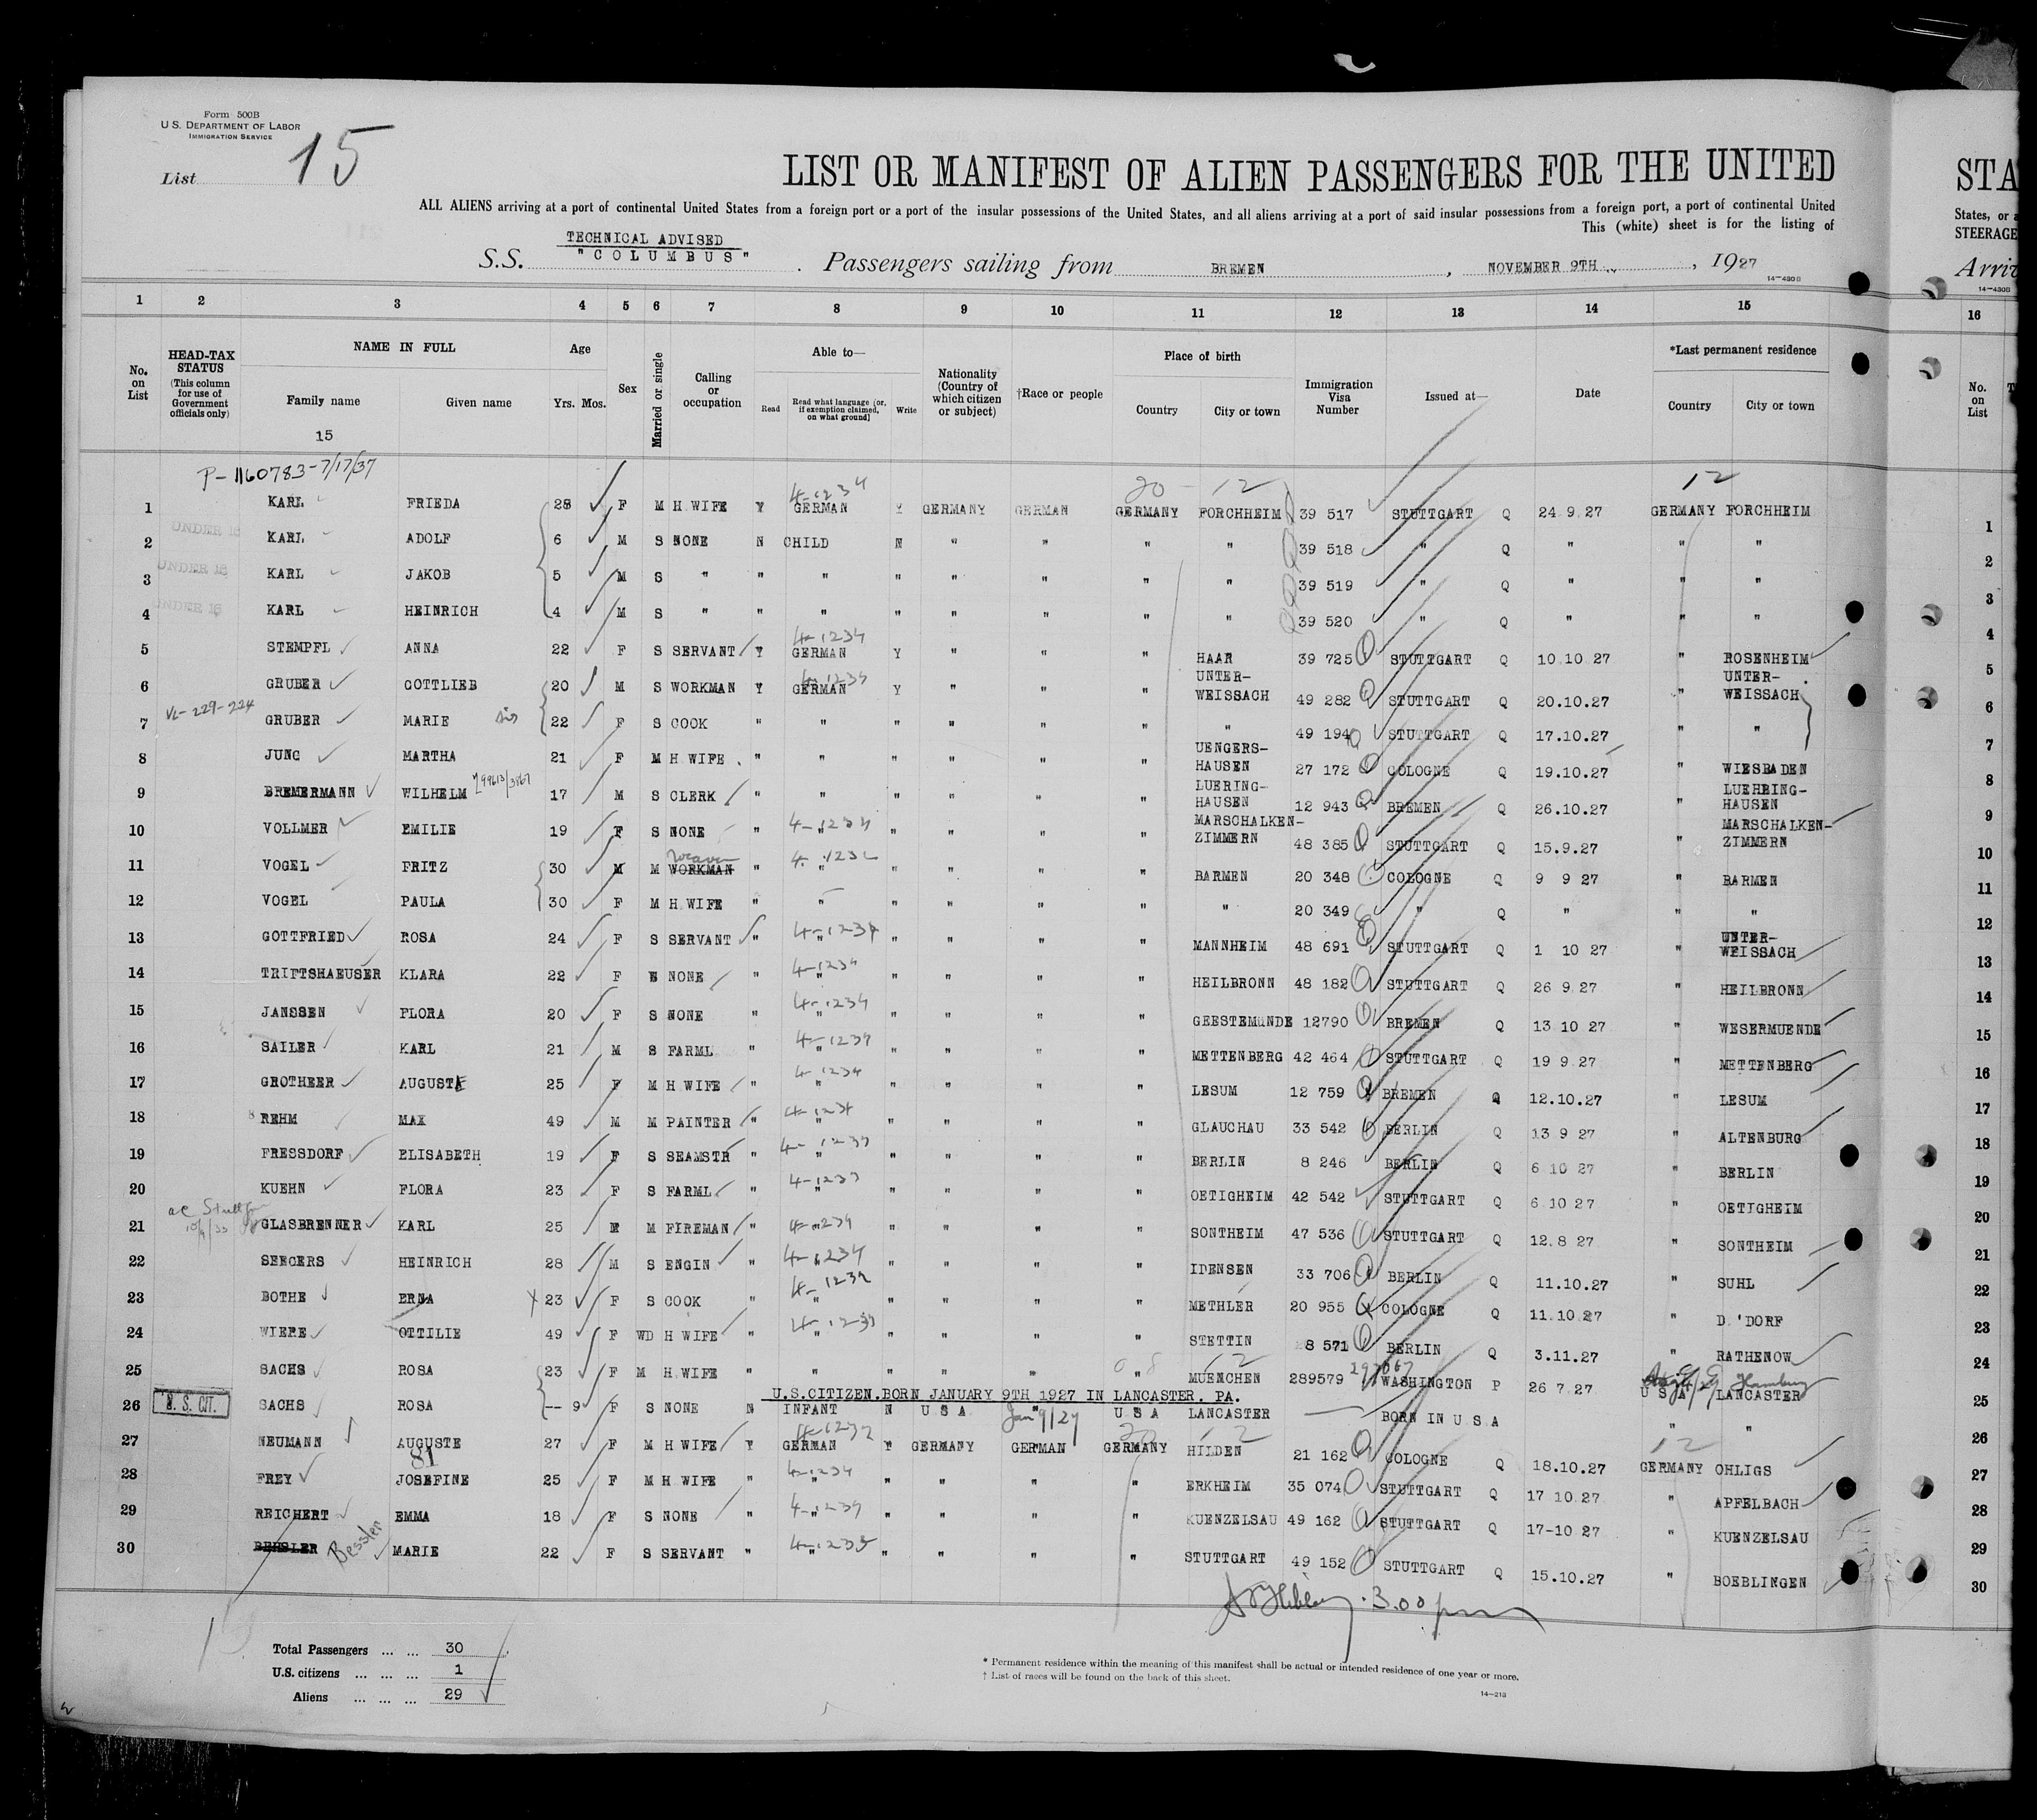 Form 500B
U. S. DEPARTMENT OF LABOR
IMMIGRATION SERVICE
List 15
LIST OR MANIFEST OF ALIEN PASSENGERS FOR THE UNITED
STA
ALL ALIENS arriving at a port of continental United States from a foreign port or a port of the insular possessions of the United States, and all aliens arriving at a port of said insular possessions from a foreign port, a port of continental United
States, or a
This (white) sheet is for the listing of
STEERAGE
TECHNICAL ADVISED
S.S. "COLUMBUS" . Passengers sailing from BREMEN , NOVEMBER 9TH , 1927
14-430B
14-430B
1 2 3 4 5 6 7 8 9 10 11 12 13 14 15 16
No. on List
HEAD-TAX STATUS (This column for use of Government officials only)
NAME IN FULL
Family name Given name
Age
Yrs. Mos.
Sex
Married or single
Calling or occupation
Able to—
Read Read what language (or, if exemption claimed, on what ground) Write
Nationality (Country of which citizen or subject)
†Race or people
Place of birth
Country City or town
Immigration Visa Number
Issued at—
Date
*Last permanent residence
Country City or town
No. on List
15
P-1160783-7/17/37
4-1234 20 - 12 12
1 KARL FRIEDA 28 F M H.WIFE Y GERMAN Y GERMANY GERMAN GERMANY FORCHHEIM 39 517 STUTTGART Q 24 9 27 GERMANY FORCHHEIM 1
2 UNDER 16 KARL ADOLF 6 M S NONE N CHILD N " " " " 39 518 " Q " " " 2
3 UNDER 16 KARL JAKOB 5 M S " " " " " " " " 39 519 " Q " " " 3
4 UNDER 16 KARL HEINRICH 4 M S " " " " " " " " 39 520 " Q " " " 4
4-1234
5 STEMPFL ANNA 22 F S SERVANT Y GERMAN Y " " " HAAR 39 725 STUTTGART Q 10.10 27 " ROSENHEIM 5
6 GRUBER GOTTLIEB 20 M S WORKMAN Y GERMAN Y " " " UNTER-WEISSACH 49 282 STUTTGART Q 20.10.27 " UNTER-WEISSACH 6
7 GRUBER MARIE sis 22 F S COOK " " " " " " " 49 194 STUTTGART Q 17.10.27 " " 7
8 JUNG MARTHA 21 F M H WIFE " " " " " " UENGERS-HAUSEN 27 172 COLOGNE Q 19.10.27 " WIESBADEN 8
9 BREMERMANN WILHELM 17 M S CLERK " " " " " " LUERING-HAUSEN 12 943 BREMEN Q 26.10.27 " LUEHRING-HAUSEN 9
10 VOLLMER EMILIE 19 F S NONE " 4-1234 " " " " " MARSCHALKEN-ZIMMERN 48 385 STUTTGART Q 15.9.27 " MARSCHALKEN-ZIMMERN 10
weaver
11 VOGEL FRITZ 30 M M WORKMAN " " " " " " BARMEN 20 348 COLOGNE Q 9 9 27 " BARMEN 11
12 VOGEL PAULA 30 F M H.WIFE " " " " " " 20 349 " Q " " " 12
13 GOTTFRIED ROSA 24 F S SERVANT " 4-1234 " " " " " MANNHEIM 48 691 STUTTGART Q 1 10 27 " UNTER-WEISSACH 13
14 TRIFTSHAEUSER KLARA 22 F S NONE " 4-1234 " " " " " HEILBRONN 48 182 STUTTGART Q 26 9 27 " HEILBRONN 14
15 JANSSEN FLORA 20 F S NONE " 4-1234 " " " " " GEESTEMUNDE 12790 BREMEN Q 13 10 27 " WESERMUENDE 15
16 SAILER KARL 21 M S FARML " 4-1234 " " " " " METTENBERG 42 464 STUTTGART Q 19 9.27 " METTENBERG 16
17 GROTHEER AUGUSTE 25 F M H WIFE " 4-1234 " " " " " LESUM 12 759 BREMEN Q 12.10.27 " LESUM 17
18 REHM MAX 49 M M PAINTER " 4-1234 " " " " " GLAUCHAU 33 542 BERLIN Q 13 9 27 " ALTENBURG 18
19 FRESSDORF ELISABETH 19 F S SEAMSTR " 4-1234 " " " " " BERLIN 8 246 BERLIN Q 6 10 27 " BERLIN 19
20 KUEHN FLORA 23 F S FARML " 4-1234 " " " " " OETIGHEIM 42 542 STUTTGART Q 6 10 27 " OETIGHEIM 20
21 GLASBRENNER KARL 25 M M FIREMAN " 4-1234 " " " " " SONTHEIM 47 536 STUTTGART Q 12.8 27 " SONTHEIM 21
22 SEEGERS HEINRICH 28 M S ENGIN " 4-1234 " " " " " IDENSEN 33 706 BERLIN Q 11.10.27 " SUHL 22
23 BOTHE ERNA X 23 F S COOK " 4-1234 " " " " " METHLER 20 955 COLOGNE Q 11.10.27 " D.'DORF 23
24 WIEPE OTTILIE 49 F WD H WIFE " 4-1234 " " " " " STETTIN 8 571 BERLIN Q 3.11.27 " RATHENOW 24
25 SACHS ROSA 23 F M H.WIFE " " " " " " MUENCHEN 289579 WASHINGTON P 26 7.27 U S A LANCASTER 25
U.S.CITIZEN.BORN JANUARY 9TH 1927 IN LANCASTER, PA.
26 U. S. CIT. SACHS ROSA -- 9 F S NONE N INFANT N U S A Jan 9/27 U S A LANCASTER BORN IN U S A " " 26
27 NEUMANN AUGUSTE 27 F M H WIFE Y GERMAN Y GERMANY GERMAN GERMANY HILDEN 21 162 COLOGNE Q 18.10.27 GERMANY OHLIGS 27
81
28 FREY JOSEFINE 25 F M H WIFE " 4-1234 " " " " " ERKHEIM 35 074 STUTTGART Q 17 10.27 " APFELBACH 28
29 REICHERT EMMA 18 F S NONE " 4-1234 " " " " " KUENZELSAU 49 162 STUTTGART Q 17-10 27 " KUENZELSAU 29
30 Bessler MARIE 22 F S SERVANT " " " " " " STUTTGART 49 152 STUTTGART Q 15.10.27 " BOEBLINGEN 30
3.00 pm
Total Passengers ... ... 30
U.S. citizens ... ... ... 1
Aliens ... ... ... 29
* Permanent residence within the meaning of this manifest shall be actual or intended residence of one year or more.
† List of races will be found on the back of this sheet.
14-213